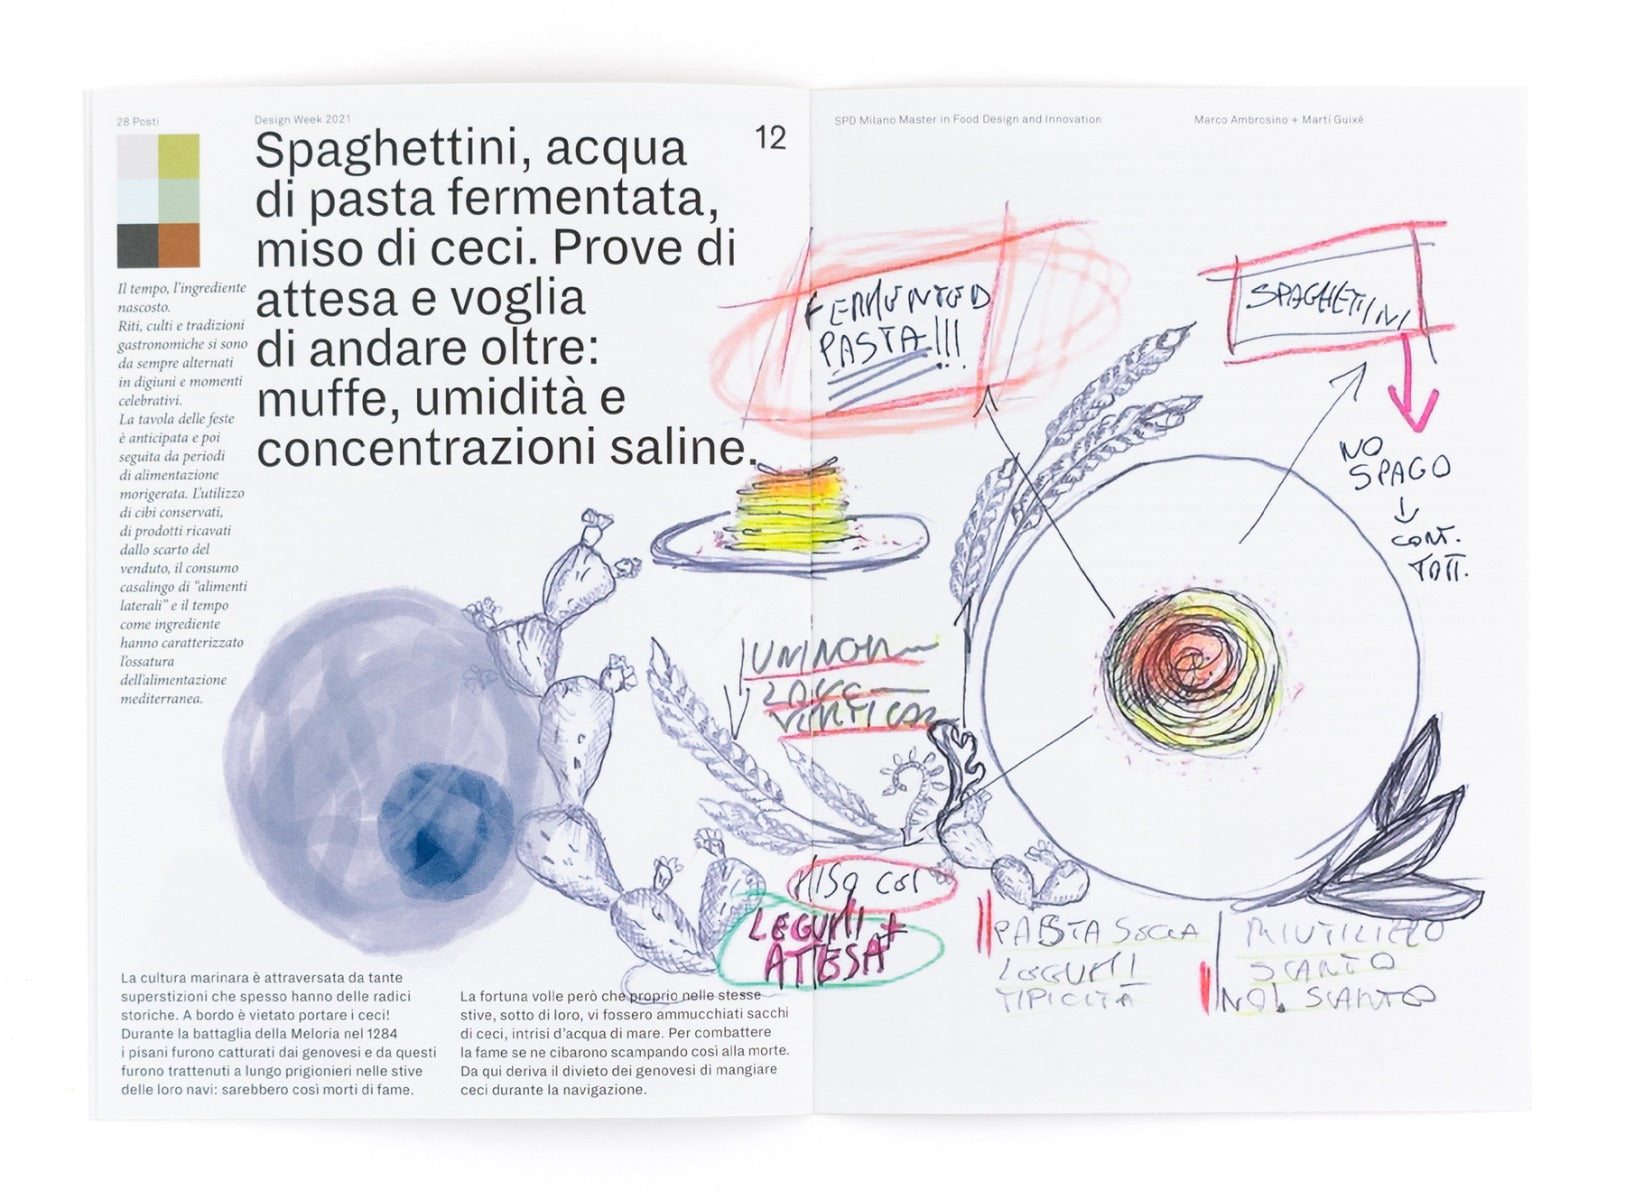 28 Posti
Design Week 2021
12
Spaghettini, acqua
di pasta fermentata,
miso di ceci. Prove di
attesa e voglia
di andare oltre:
muffe, umidità e
concentrazioni saline.
Il tempo, l'ingrediente
nascosto.
Riti, culti e tradizioni
gastronomiche si sono
da sempre alternati
in digiuni e momenti
celebrativi.
La tavola delle feste
è anticipata e poi
seguita da periodi
di alimentazione
morigerata. L'utilizzo
di cibi conservati,
di prodotti ricavati
dallo scarto del
venduto, il consumo
casalingo di "alimenti
laterali" e il tempo
come ingrediente
hanno caratterizzato
l'ossatura
dell'alimentazione
mediterranea.
La cultura marinara è attraversata da tante
superstizioni che spesso hanno delle radici
storiche. A bordo è vietato portare i ceci!
Durante la battaglia della Meloria nel 1284
i pisani furono catturati dai genovesi e da questi
furono trattenuti a lungo prigionieri nelle stive
delle loro navi: sarebbero così morti di fame.
La fortuna volle però che proprio nelle stesse
stive, sotto di loro, vi fossero ammucchiati sacchi
di ceci, intrisi d'acqua di mare. Per combattere
la fame se ne cibarono scampando così alla morte.
Da qui deriva il divieto dei genovesi di mangiare
ceci durante la navigazione.
SPD Milano Master in Food Design and Innovation
Marco Ambrosino + Martí Guixé
FERMENTED
PASTA!!!
SPAGHETTINI
NO
SPAGO
MISO
LEGUMI +
ATTESA
PASTA SECCA
LEGUMI
TIPICITÀ
SCARTO
NON SCARTO